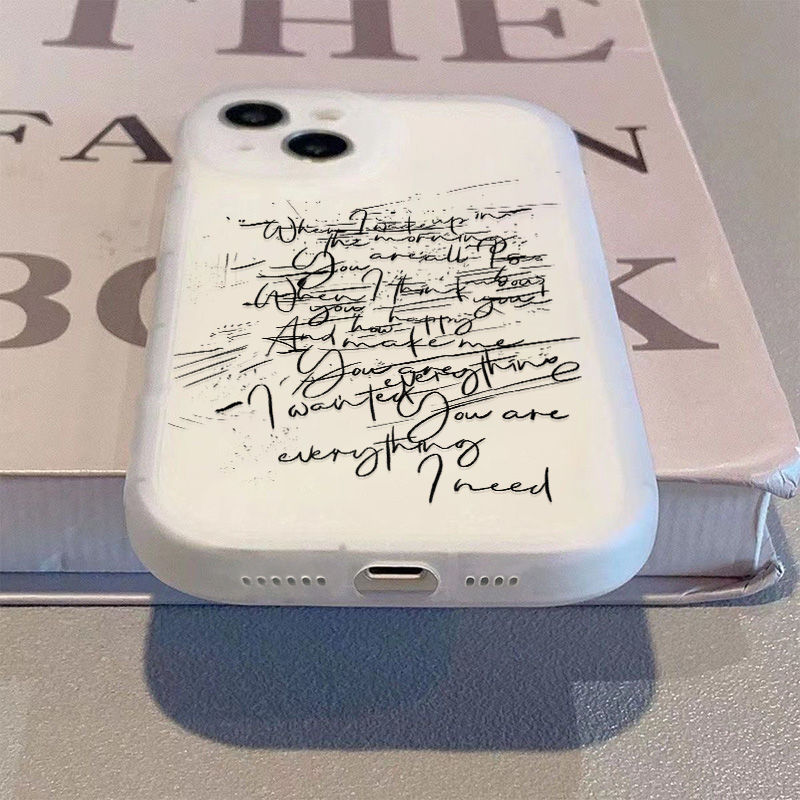 THE
FA N
BO K
When I wake up in
the morning
You are all I see
When I think about
you
And how happy you
make me
You are everything
I wanted You are
everything
I need